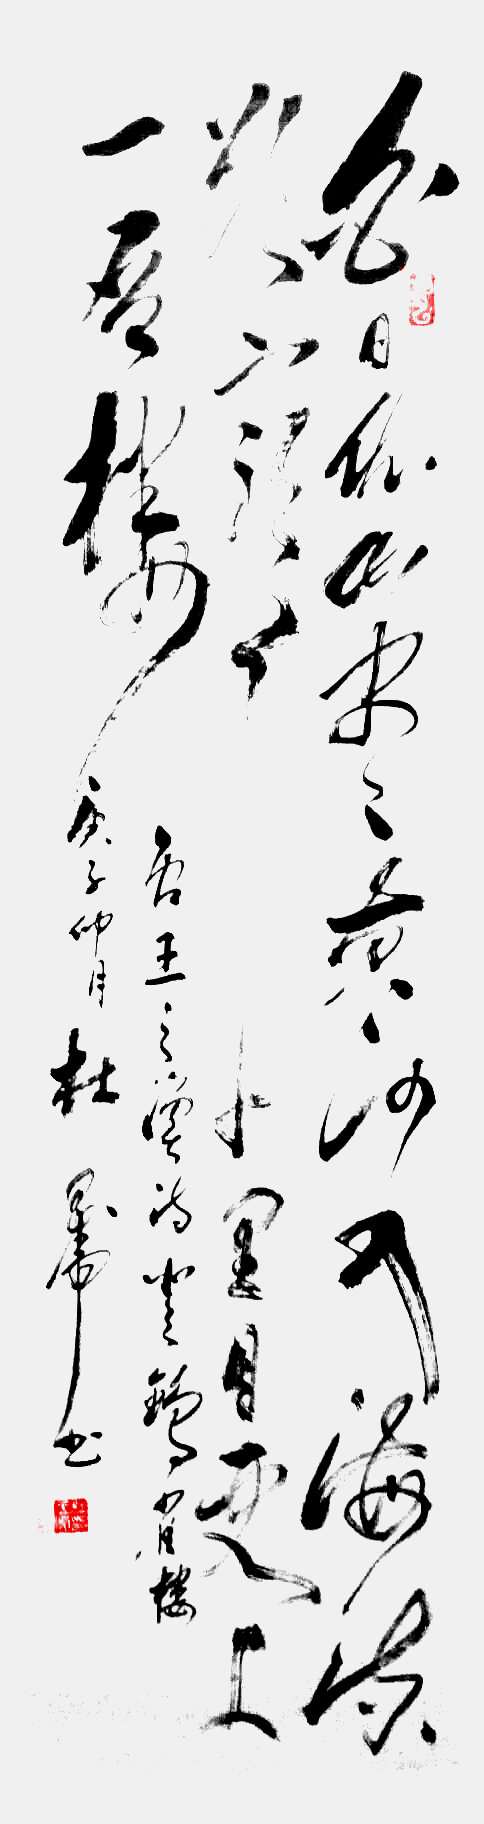 白日依山尽黄河入海流
欲窮千里目更上
一層楼
右王之涣诗登鹳雀楼
庚子仲月杜书